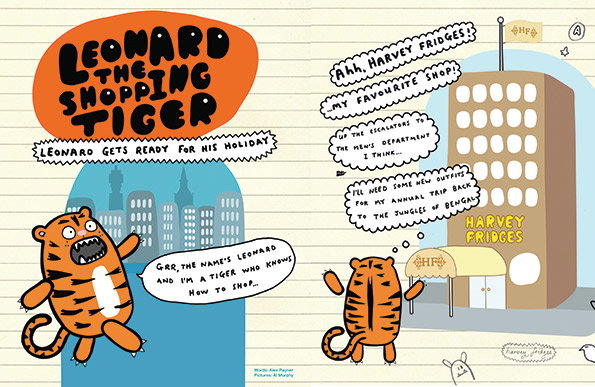 LEONARD
THE
SHOPPING
TIGER
LEONARD GETS READY FOR HIS HOLIDAY
GRR, THE NAME'S LEONARD
AND I'M A TIGER WHO KNOWS
HOW TO SHOP...
Words: Alex Rayner
Pictures: Al Murphy
Ahh, HARVEY FRIDGES!
...MY FAVOURITE SHOP!
UP THE ESCALATORS TO
THE MEN'S DEPARTMENT
I THINK...
I'LL NEED SOME NEW OUTFITS
FOR MY ANNUAL TRIP BACK
TO THE JUNGLES OF BENGAL
HF
HARVEY
FRIDGES
HF
harvey fridges
A